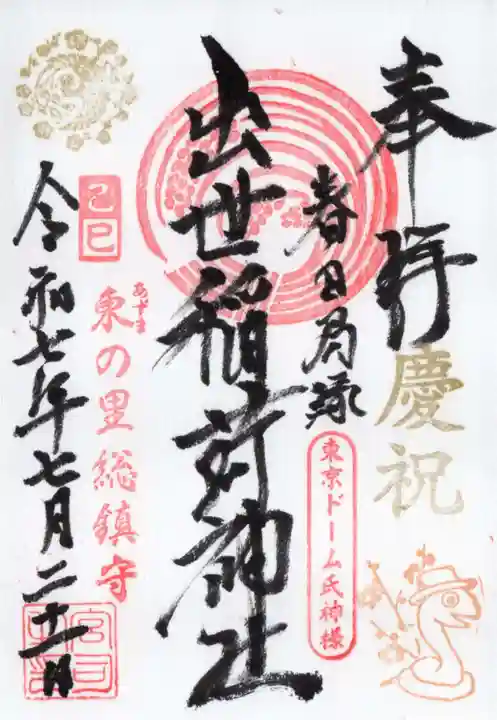 奉拝
慶祝
春日局塚
東京ドーム氏神様
出世稲荷神社
己巳
あずま
東の里総鎮守
令和七年七月二十一日